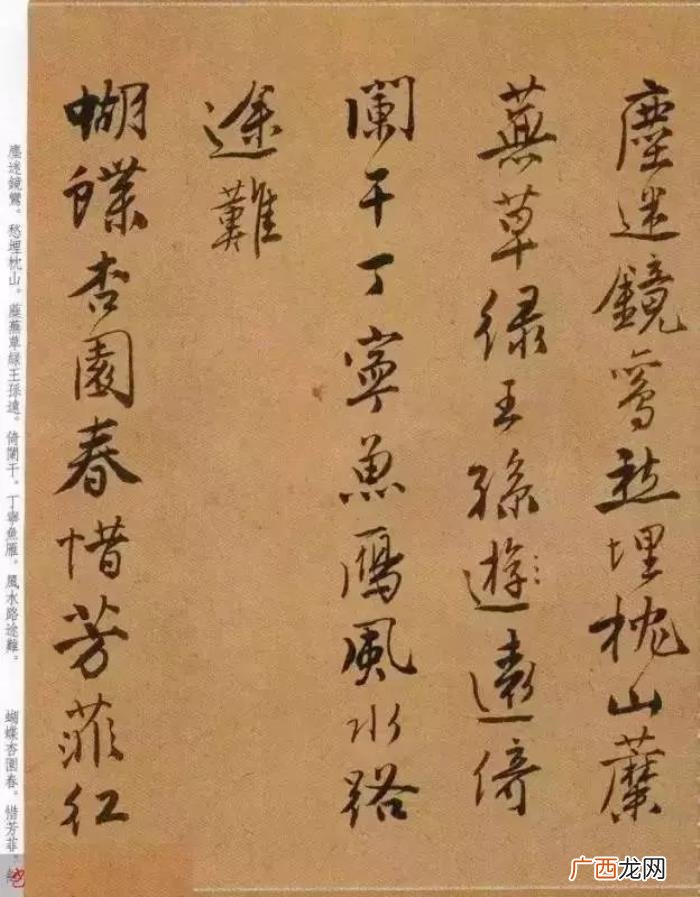 塵迷鏡鸞愁埋枕山蘼
蕪草綠王孫遊遠倚
闌干丁寧魚鴈風水路
途難
蝴蝶杏園春惜芳菲紅
塵迷鏡鸞。愁埋枕山。蘼蕪草綠王孫遠。倚闌干。丁寧魚雁。風水路途難。
蝴蝶杏園春。惜芳菲。
广西龙网